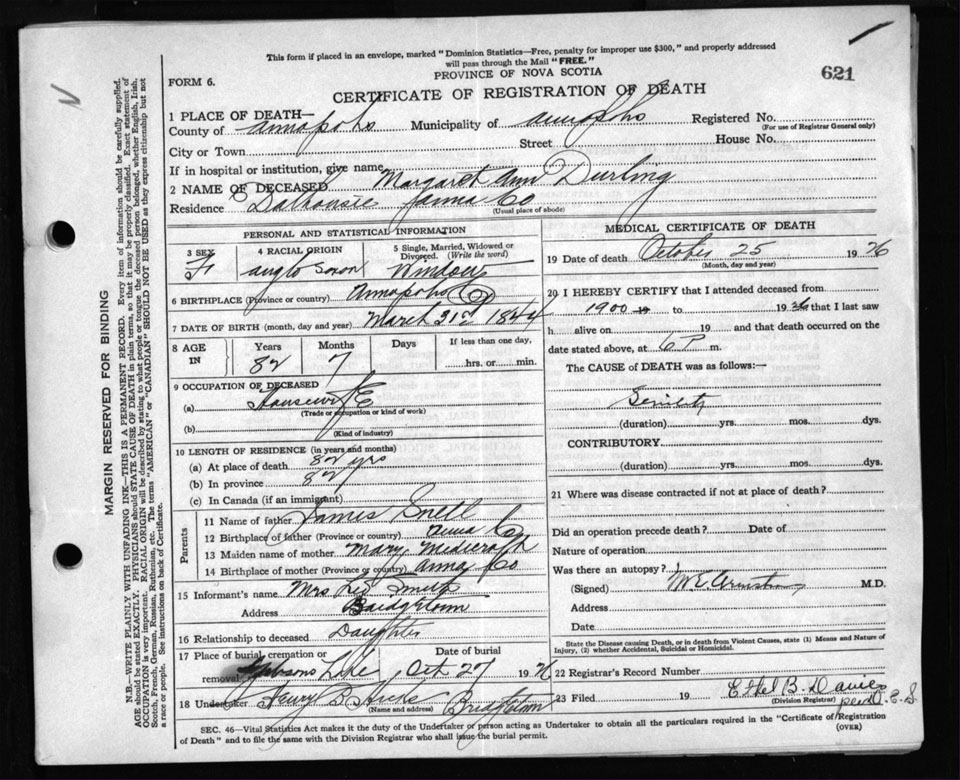 This form if placed in an envelope, marked "Dominion Statistics—Free, penalty for improper use $300," and properly addressed
will pass through the Mail "FREE."
FORM 6.
PROVINCE OF NOVA SCOTIA
621
CERTIFICATE OF REGISTRATION OF DEATH
1 PLACE OF DEATH—
County of Annapolis Municipality of Annapolis Registered No.
(For use of Registrar General only)
City or Town Street House No.
If in hospital or institution, give name
2 NAME OF DECEASED Margaret Ann Durling
Residence Dalhousie Anna Co
(Usual place of abode)
PERSONAL AND STATISTICAL INFORMATION
3 SEX F
4 RACIAL ORIGIN Anglo Saxon
5 Single, Married, Widowed or Divorced. (Write the word) Widow
6 BIRTHPLACE (Province or country) Annapolis Co
7 DATE OF BIRTH (month, day and year) March 21st 1844
8 AGE IN Years 82 Months 7 Days If less than one day, hrs. or min.
9 OCCUPATION OF DECEASED
(a) Housewife
(Trade or occupation or kind of work)
(b)
(Kind of industry)
10 LENGTH OF RESIDENCE (in years and months)
(a) At place of death 82 yrs
(b) In province 82
(c) In Canada (if an immigrant)
Parents
11 Name of father James Snell
12 Birthplace of father (Province or country) Anna Co
13 Maiden name of mother Mary
14 Birthplace of mother (Province or country) Anna Co
15 Informant's name Mrs Smith
Address Bridgetown
16 Relationship to deceased Daughter
17 Place of burial, cremation or removal Gibsons Lake Date of burial Oct 27 1926
18 Undertaker Henry B Hicks Bridgetown
(Name and address)
MEDICAL CERTIFICATE OF DEATH
19 Date of death October 25 1926
(Month, day and year)
20 I HEREBY CERTIFY that I attended deceased from
1900 19 to 1926 that I last saw
h alive on 19 and that death occurred on the
date stated above, at 6 P m.
The CAUSE of DEATH was as follows:—
Senility
(duration) yrs. mos. dys.
CONTRIBUTORY
(duration) yrs. mos. dys.
21 Where was disease contracted if not at place of death?
Did an operation precede death? Date of
Nature of operation
Was there an autopsy?
(Signed) M.D.
Address
Date
State the Disease causing Death, or in death from Violent Causes, state (1) Means and Nature of
Injury, (2) whether Accidental, Suicidal or Homicidal.
22 Registrar's Record Number
23 Filed 19 Ethel B. Davies
(Division Registrar)
SEC. 46—Vital Statistics Act makes it the duty of the Undertaker or person acting as Undertaker to obtain all the particulars required in the "Certificate of Registration
of Death" and to file the same with the Division Registrar who shall issue the burial permit.
(OVER)
MARGIN RESERVED FOR BINDING
N.B.—WRITE PLAINLY, WITH UNFADING INK—THIS IS A PERMANENT RECORD. Every item of information should be carefully supplied.
AGE should be stated EXACTLY. PHYSICIANS should STATE CAUSE OF DEATH in plain terms, so that it may be properly classified. Exact statement of
OCCUPATION is very important. RACIAL ORIGIN will be described by stating to what people or tongue the deceased person belonged, whether English, Irish,
Scotch, French, German, Russian, Ruthenian, etc. The terms "AMERICAN" or "CANADIAN" SHOULD NOT BE USED as they express citizenship but not
a race or people. See instructions on back of Certificate.